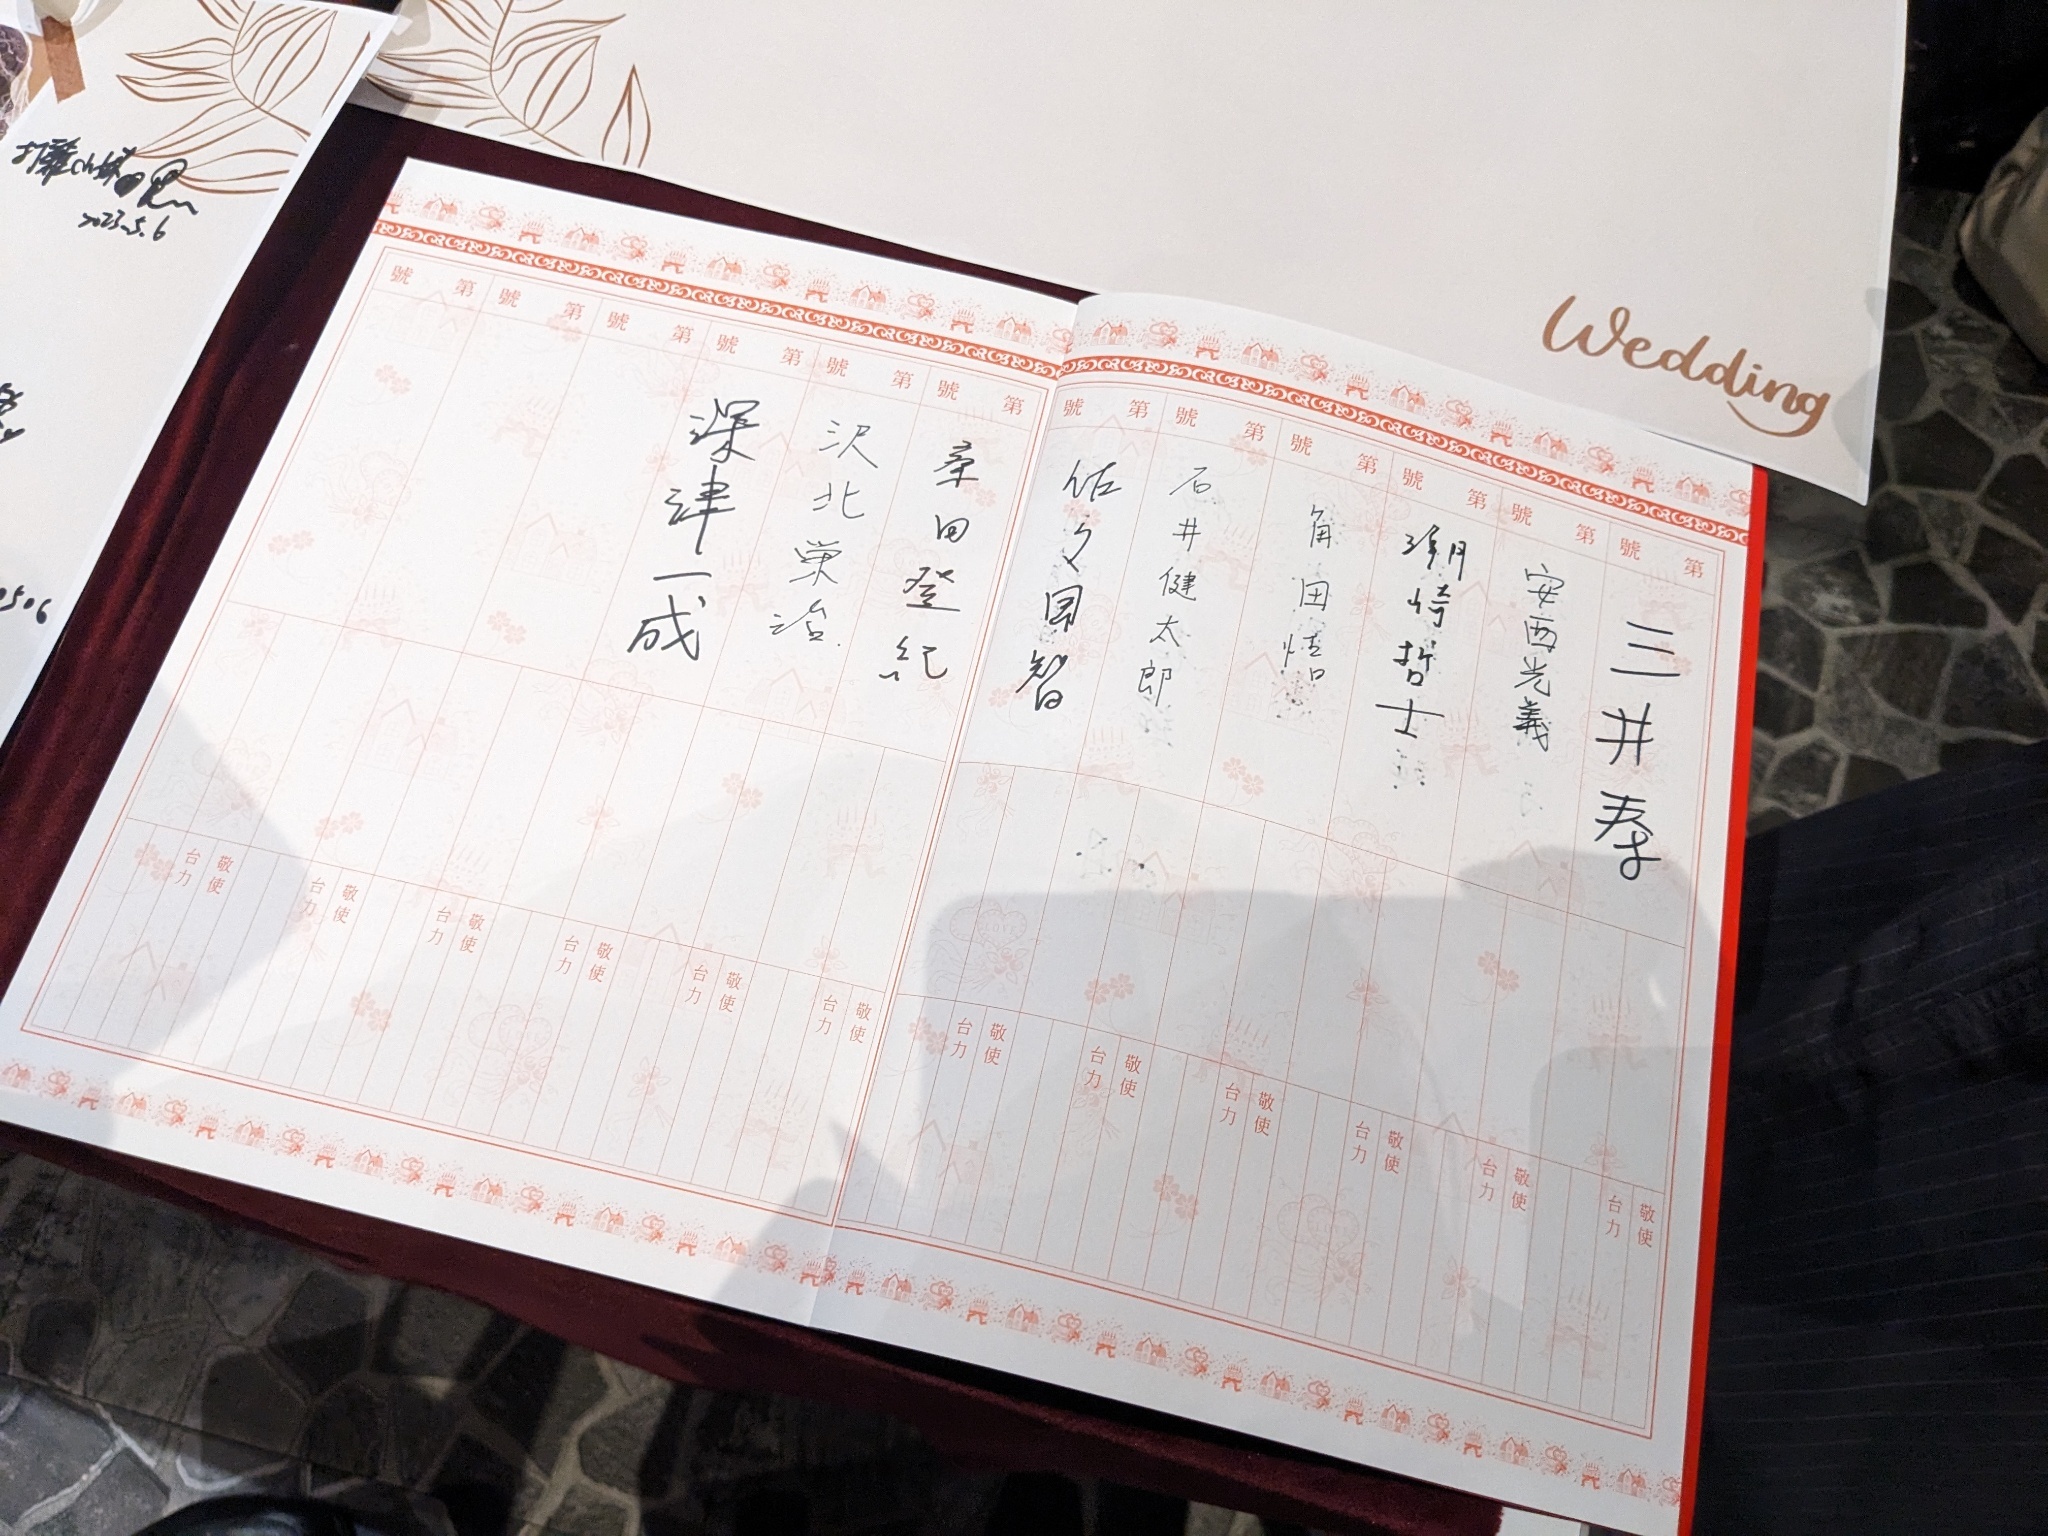 Wedding
2023.5.6
第 號
三井寿
敬使
台力
第 號
安西光義
敬使
台力
第 號
潮崎哲士
敬使
台力
第 號
角田悟
敬使
台力
第 號
石井健太郎
敬使
台力
第 號
佐々岡智
敬使
台力
第 號
桑田登紀
敬使
台力
第 號
沢北栄治
敬使
台力
第 號
深津一成
敬使
台力
第 號
敬使
台力
第 號
敬使
台力
第 號
敬使
台力